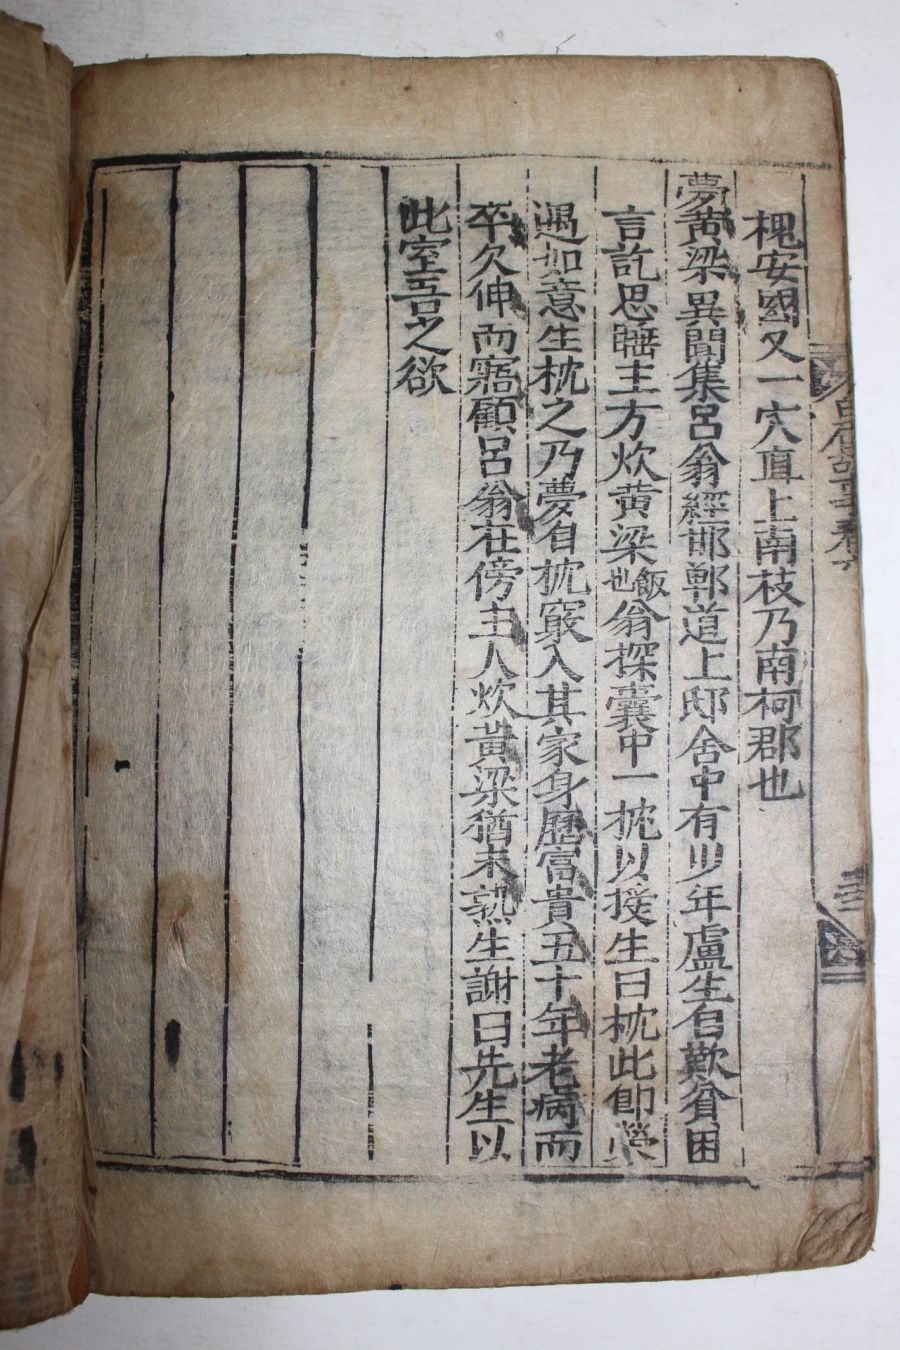 槐安國又一穴直上南枝乃南柯郡也
夢黃梁異聞集呂翁經邯鄲道上邸舍中有少年盧生自歎貧困
言訖思睡主方炊黃梁飯也翁探囊中一枕以授生曰枕此卽榮
遇如意生枕之乃夢自枕竅入其家身歷富貴五十年老病而
卒欠伸而寤顧呂翁在傍主人炊黃梁猶未熟生謝曰先生以
此窒吾之欲